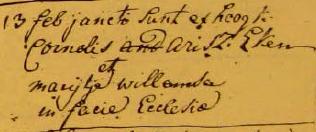 13 feb juncti sunt ex hoogk:
Cornelis Arisz. Eken
et
marijtje willemse
in facie Ecclesiæ